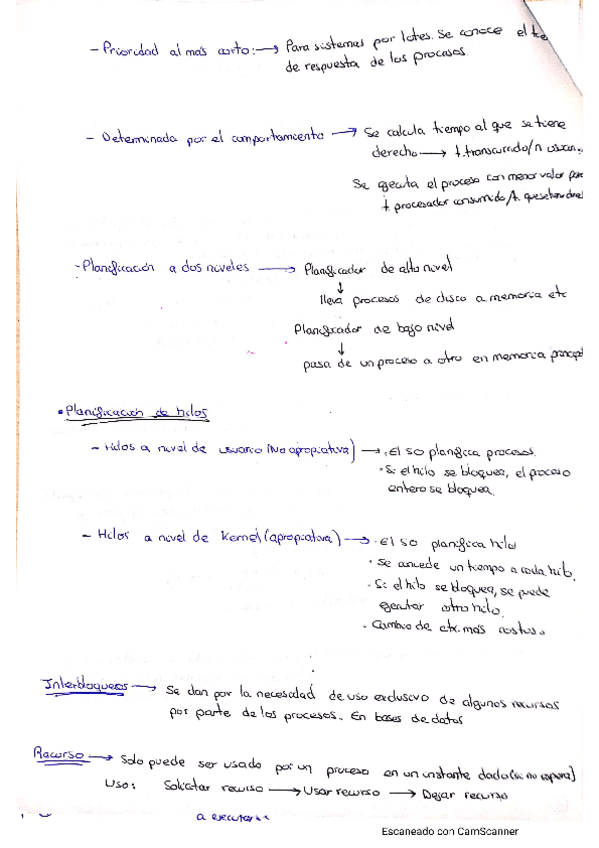 - Prioridad al más corto: → Para sistemas por lotes. Se conoce el
de respuesta de los procesos.
- Determinada por el comportamiento → Se calcula tiempo al que se tiene
derecho → t. transcurrido/n
Se ejecuta el proceso con menor valor
t procesador consumido/t.
- Planificación a dos niveles → Planificador de alto nivel
↓
lleva procesos de disco a memoria etc
Planificador de bajo nivel
↓
pasa de un proceso a otro en memoria principal
• Planificación de hilos
- Hilos a nivel de usuario (No apropiativa) → · El SO planifica procesos.
· Si el hilo se bloquea, el proceso
entero se bloquea.
- Hilos a nivel de Kernel (apropiativa) → · El SO planifica hilos
· Se concede un tiempo a cada hilo.
· Si el hilo se bloquea, se puede
ejecutar otro hilo.
· Cambio de ctx. más costoso
Interbloqueos → Se dan por la necesidad de uso exclusivo de algunos recursos
por parte de los procesos. En bases de datos
Recurso → Solo puede ser usado por un proceso en un instante dado (si no espera)
Uso: Solicitar recurso → Usar recurso → Dejar recurso
a ejecutar
Escaneado con CamScanner